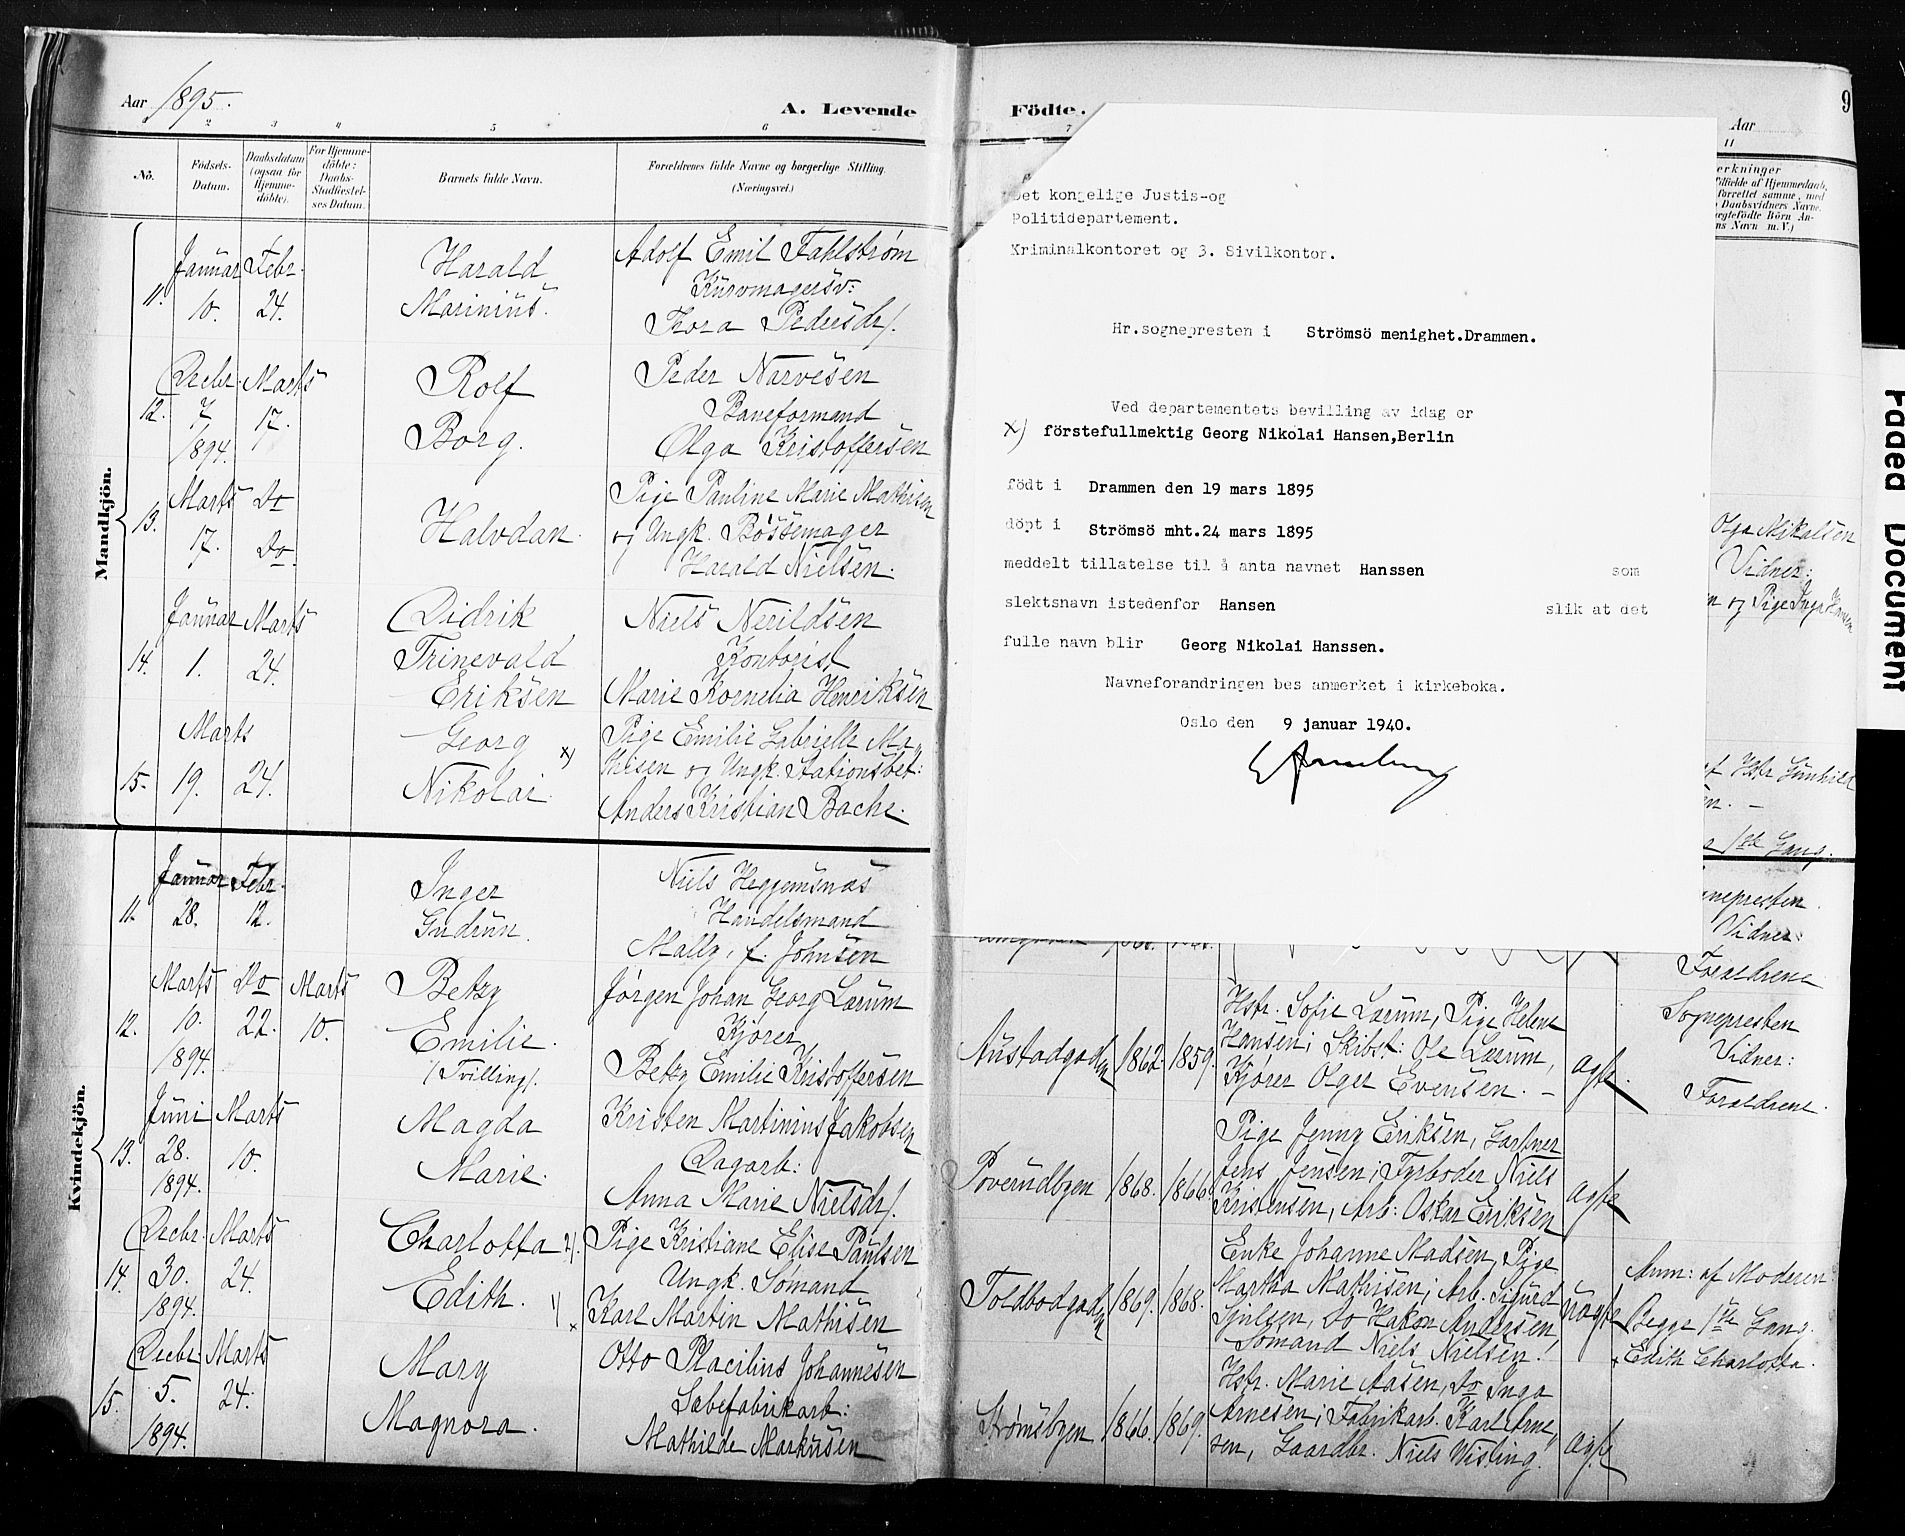 Aar 1895.
A. Levende
1 2 3 4 5 6
No.
Födsels-
Datum.
Daabsdatum
(ogsaa for
Hjemme-
döbte).
For Hjemme-
döbte:
Daabs-
Stadfæstel-
ses Datum.
Barnets fulde Navn.
Forældrenes fulde Navne og borgerlige Stilling.
(Næringsvei.)
Mandkjön.
11.
Januar
10.
Febr.
24.
Harald
Marinius.
Adolf Emil Fahlstrøm
Kurvmagersv:
Thora Pedersdr.
12.
Decbr.
7
1894.
Marts
17.
Rolf
Borg.
Peder Narvesen
Baneformand
Olga Kristoffersen
13.
Marts
17.
Do
Do.
Halvdan.
Pige Pauline Marie Mathisen
og Ungk. Bössemager
Harald Nielsen.
14.
Januar
1.
Marts
24.
Didrik
Trinevald
Eriksen
Niels Nerildsen
Kontorist
Marie Kornelia Henriksen
15.
Marts
19.
24.
Georg x)
Nikolai.
Pige Emilie Gabrielle Ma-
thisen og Ungk. Stationsbet:
Anders Kristian Bache.
Kvindekjön.
11.
Januar
28.
Febr.
12.
Inger
Gudrun.
Niels Heggemsnæs
Handelsmand
Mally, f. Johnsen
12.
Marts
10.
1894.
Do
22.
Marts
10.
Betzy
Emilie.
(Tvilling).
Jørgen Johan Georg Lærum
Kjører
Betzy Emilie Kristoffersen
13.
Juni
28.
1894.
Marts
10.
Magda
Marie.
Kristen Martinius Jakobsen
Dagarb:
Anna Marie Nielsdr.
14.
Decbr.
30.
1894.
Marts
24.
Charlotta
Edith.
Pige Kristiane Elise Paulsen
Ungk. Sømand
Karl Martin Mathisen
15.
Decbr.
5.
1894.
Marts
24.
Mary
Magnora.
Otto Placilius Johannesen
Sæbefabrikarb:
Mathilde Markusen
Födte.
7
Det kongelige Justis-og
Politidepartement.
Kriminalkontoret og 3. Sivilkontor.
Hr.sognepresten i Strömsö menighet.Drammen.
Ved departementets bevilling av idag er
x) förstefullmektig Georg Nikolai Hansen,Berlin
født i Drammen den 19 mars 1895
döpt i Strömsö mht.24 mars 1895
meddelt tillatelse til å anta navnet Hanssen som
slektsnavn istedenfor Hansen slik at det
fulle navn blir Georg Nikolai Hanssen.
Navneforandringen bes anmerket i kirkeboka.
Oslo den 9 januar 1940.
9
Aar
11
erkninger
Tilfælde af Hjemmedaab,
forrettet samme, med
Daabsvidners Navne.
ægtefödte Börn An-
ns Navn m. V.)
Olga Mikalsen
Vidner:
n og Pige Inga Hansen
af Hstr Gunhild
en. –
1ste Gang.
gnepresten.
Vidner:
Forældrene
Austadgaden
1862
1859.
Hstr. Sofie Lærum, Pige Helene
Hansen; Skibst: Ole Lærum,
Kjører Olger Evensen. –
ægte.
Sognepresten
Vidner:
Forældrene.
Poverudbyen
1868.
1866.
Pige Jenny Eriksen, Gartner
Jens Jensen; Fyrbøder Niels
Kristensen, Arb: Oskar Eriksen
ægte
Toldbodgaden
1869.
1868.
Enke Johanne Madsen, Pige
Martha Mathisen; Arb. Sigurd
Do Hakon Andersen,
Sømand Niels Nielsen.
uægte
Anm: af Moderen
Begge 1ste Gang.
x Edith Charlotta.
Strømsbyen
1866.
1869.
Hstr. Marie Aasen, Do Inga
Arnesen; Fabrikarb. Karl Arne-
sen, Gaardbr. Niels Wisting.
ægte
Faded Document